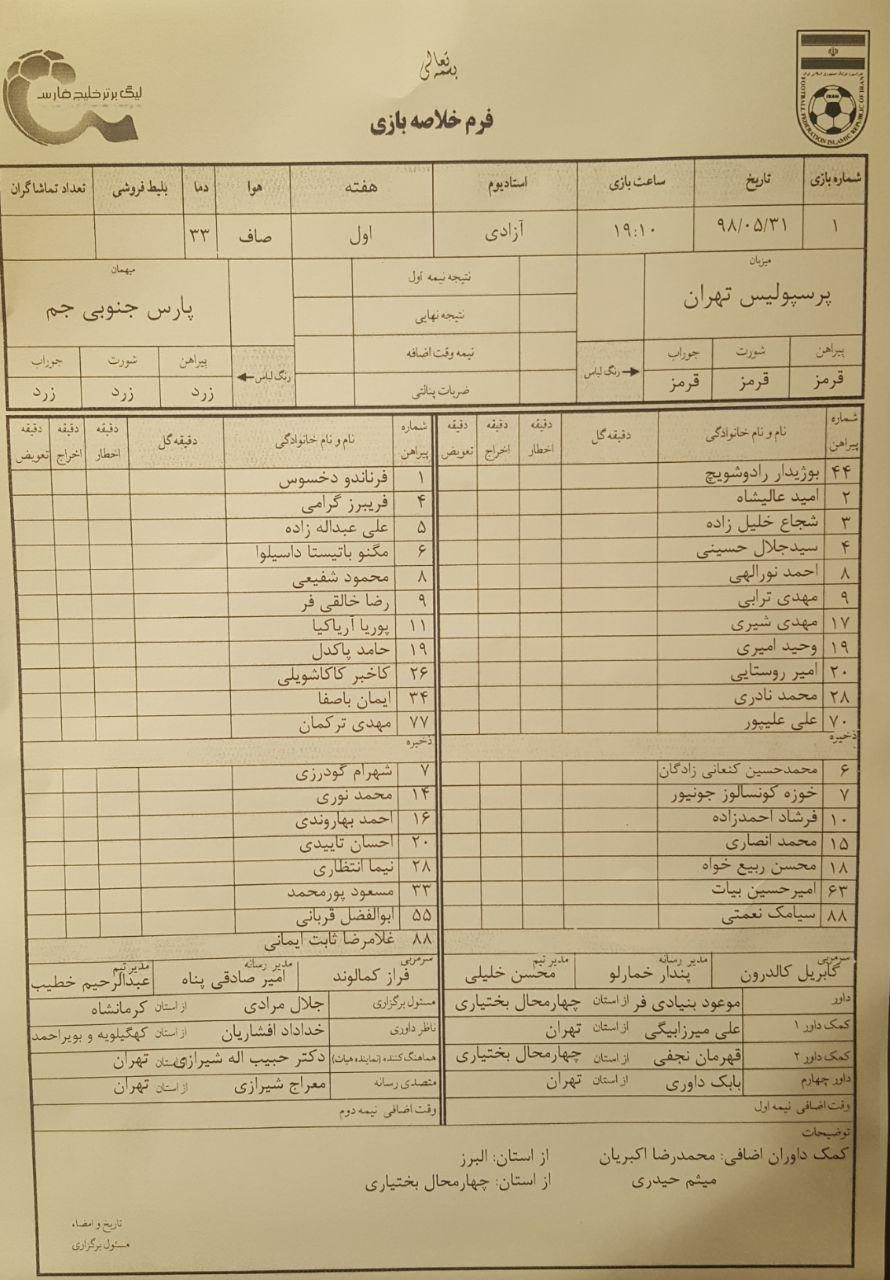 بسمه تعالی
لیگ برتر خلیج فارس
فرم خلاصه بازی
FOOTBALL FEDERATION ISLAMIC REPUBLIC OF IRAN
شماره بازی تاریخ ساعت بازی استادیوم هفته هوا دما بلیط فروشی تعداد تماشاگران
۱ ۹۸/۰۵/۳۱ ۱۹:۱۰ آزادی اول صاف ۳۳
میزبان
پرسپولیس تهران
پیراهن شورت جوراب رنگ لباس
قرمز قرمز قرمز
نتیجه نیمه اول
نتیجه نهایی
نیمه وقت اضافه
ضربات پنالتی
میهمان
پارس جنوبی جم
رنگ لباس پیراهن شورت جوراب
زرد زرد زرد
شماره پیراهن نام و نام خانوادگی دقیقه گل دقیقه اخطار دقیقه اخراج دقیقه تعویض
۴۴ بوژیدار رادوشویچ
۲ امید عالیشاه
۳ شجاع خلیل زاده
۴ سیدجلال حسینی
۸ احمد نورالهی
۹ مهدی ترابی
۱۷ مهدی شیری
۱۹ وحید امیری
۲۰ امیر روستایی
۲۸ محمد نادری
۷۰ علی علیپور
ذخیره
۶ محمدحسین کنعانی زادگان
۷ خوزه کونسالوز جونیور
۱۰ فرشاد احمدزاده
۱۵ محمد انصاری
۱۸ محسن ربیع خواه
۶۳ امیرحسین بیات
۸۸ سیامک نعمتی
سرمربی گابریل کالدرون مدیر رسانه پندار خمارلو مدیر تیم محسن خلیلی
داور موعود بنیادی فر از استان چهارمحال بختیاری
کمک داور ۱ علی میرزابیگی از استان تهران
کمک داور ۲ قهرمان نجفی از استان چهارمحال بختیاری
داور چهارم بابک داوری از استان تهران
وقت اضافی نیمه اول
شماره پیراهن نام و نام خانوادگی دقیقه گل دقیقه اخطار دقیقه اخراج دقیقه تعویض
۱ فرناندو دخسوس
۴ فریبرز گرامی
۵ علی عبداله زاده
۶ مگنو باتیستا داسیلوا
۸ محمود شفیعی
۹ رضا خالقی فر
۱۱ پوریا آریاکیا
۱۹ حامد پاکدل
۲۶ کاخبر کاکاشویلی
۳۴ ایمان باصفا
۷۷ مهدی ترکمان
ذخیره
۷ شهرام گودرزی
۱۴ محمد نوری
۱۶ احمد بهاروندی
۲۰ احسان تاییدی
۲۸ نیما انتظاری
۳۳ مسعود پورمحمد
۵۵ ابوالفضل قربانی
۸۸ غلامرضا ثابت ایمانی
سرمربی فراز کمالوند مدیر رسانه امیر صادقی پناه مدیر تیم عبدالرحیم خطیب
مسئول برگزاری جلال مرادی از استان کرمانشاه
ناظر داوری خداداد افشاریان از استان کهگیلویه و بویراحمد
هماهنگ کننده (نماینده هیات) دکتر حبیب اله شیرازی از استان تهران
متصدی رسانه معراج شیرازی از استان تهران
وقت اضافی نیمه دوم
توضیحات
کمک داوران اضافی: محمدرضا اکبریان از استان: البرز
میثم حیدری از استان: چهارمحال بختیاری
تاریخ و امضاء
مسئول برگزاری